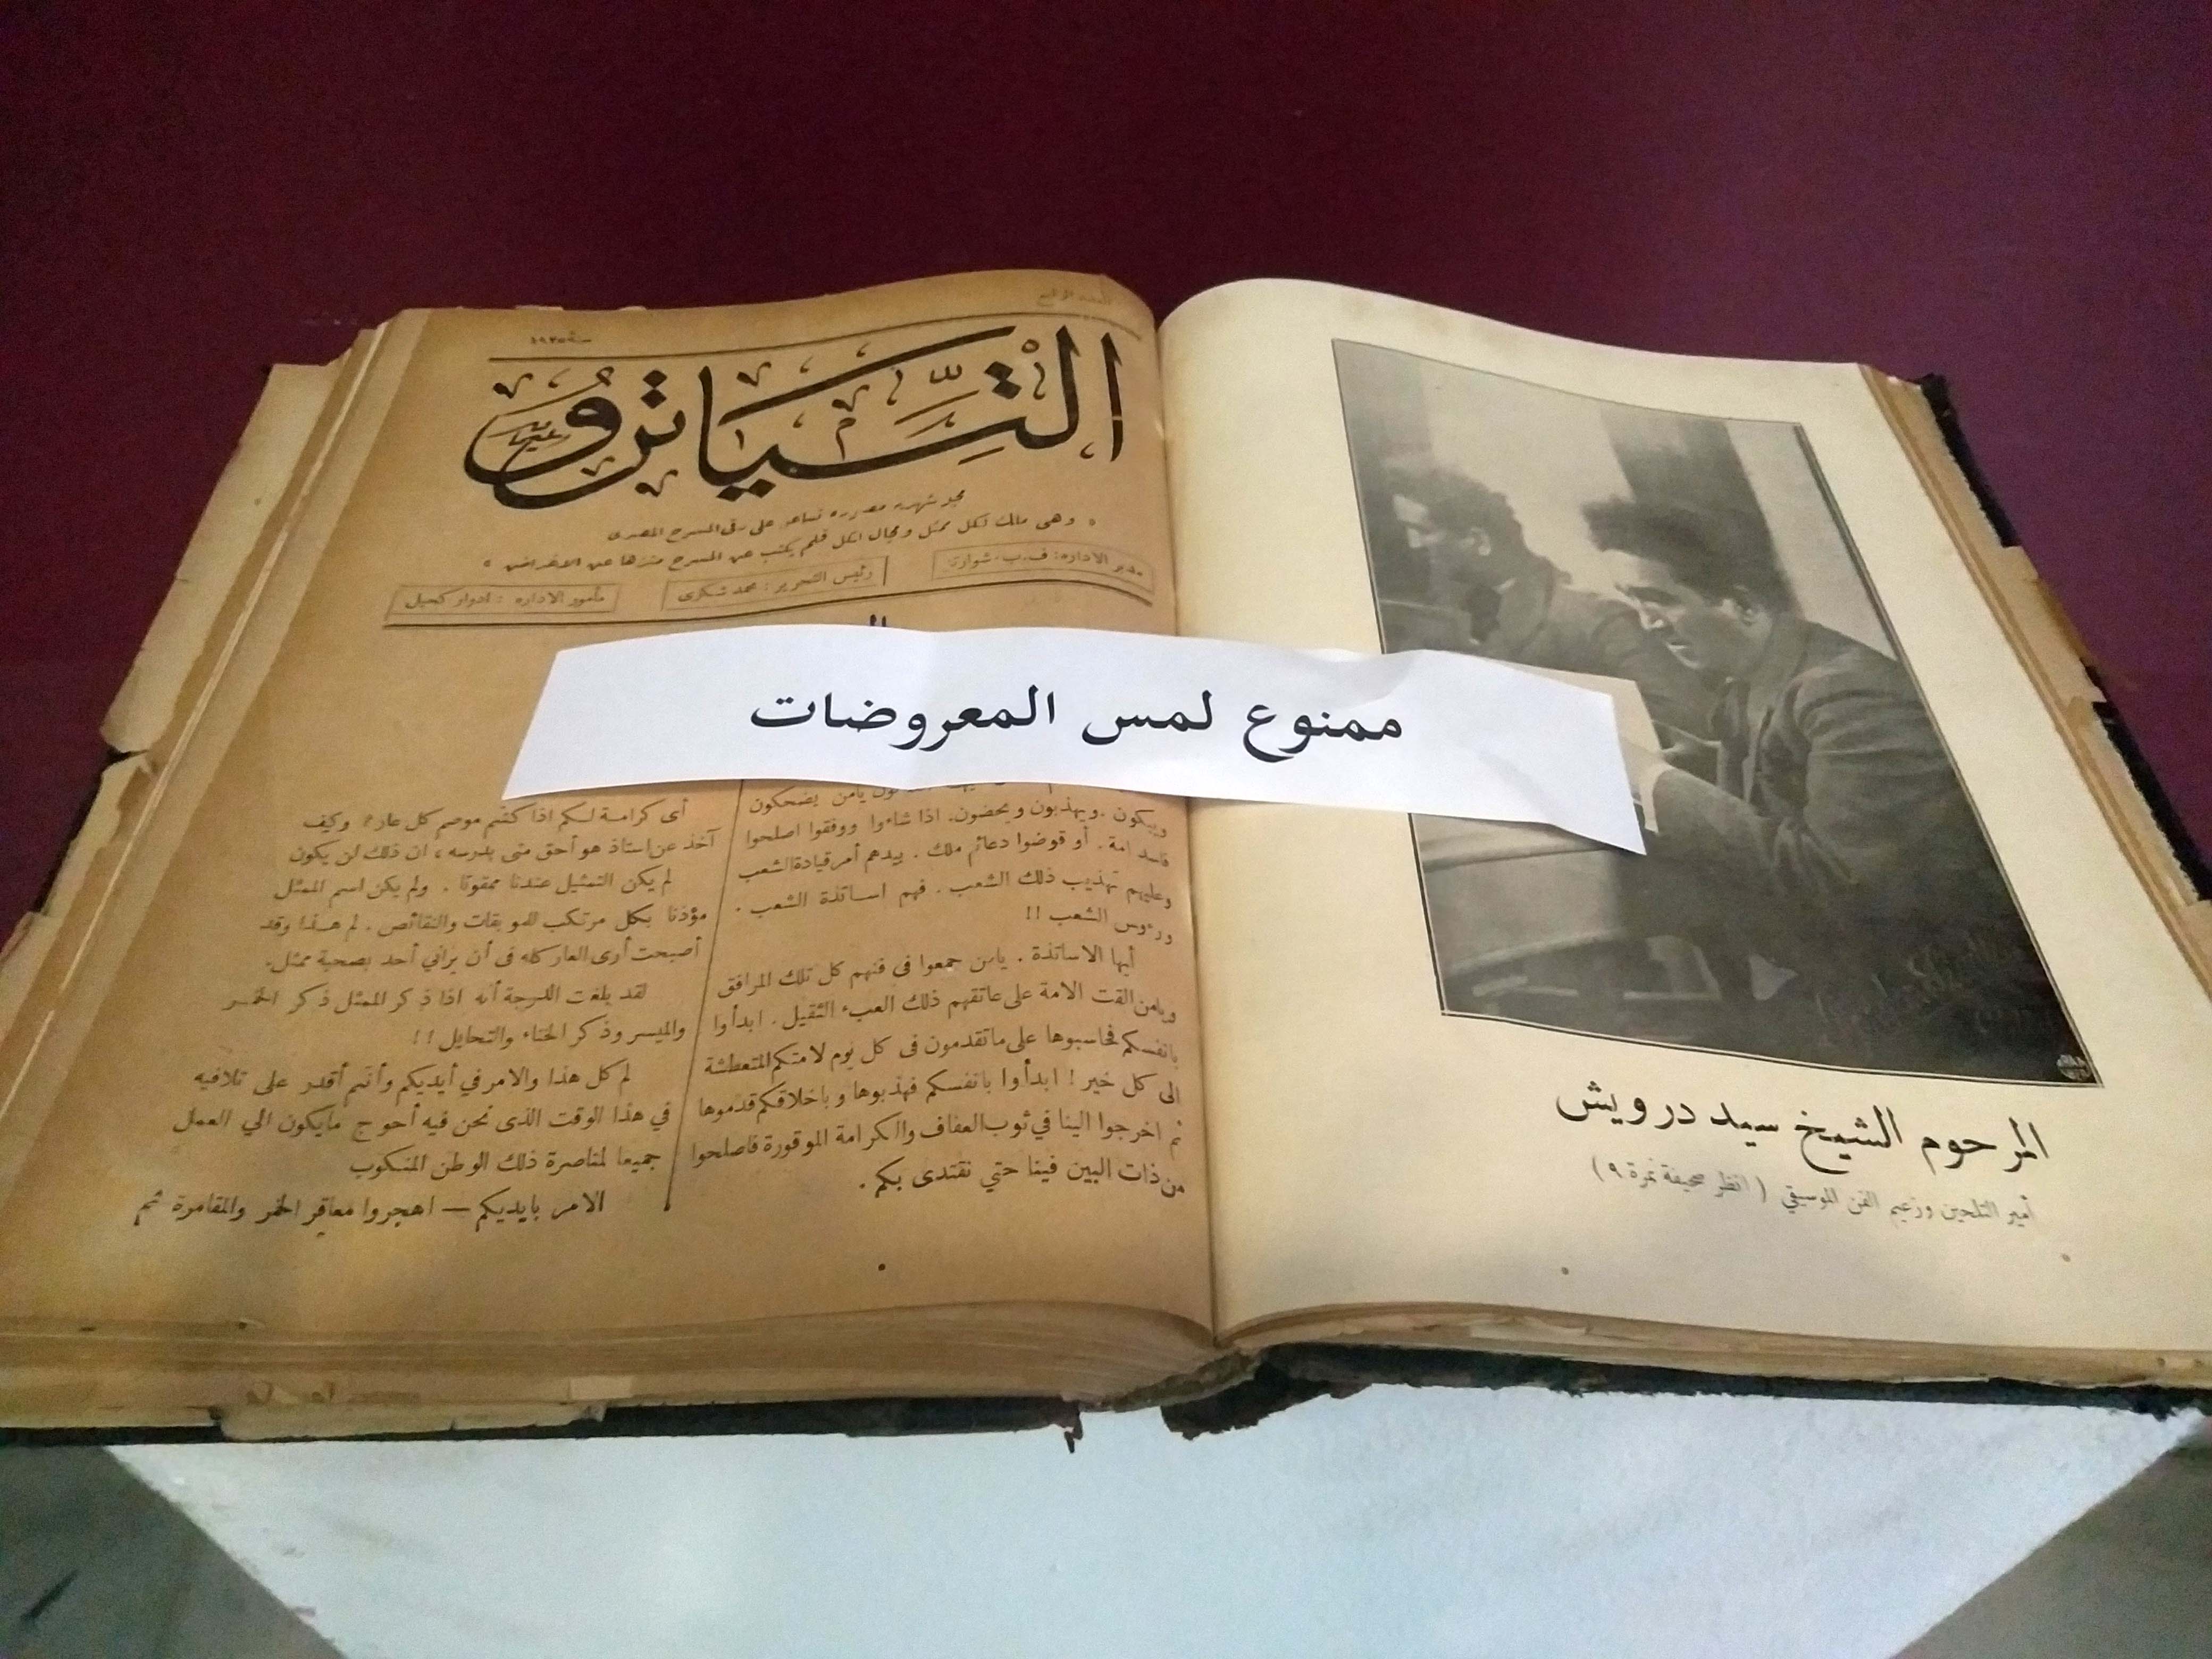 العدد الرابع
سنة ١٩٢٥
التياترو
مجلة شهرية مصورة تساعد على رقى المسرح المصرى
« وهى ملك لكل ممثل ومجال لكل قلم يكتب عن المسرح منزها عن الاغراض »
مدير الادارة: ف.ب.شوارتا
رئيس التحرير: محمد شكرى
مأمور الادارة: ادوار كحيل
ممنوع لمس المعروضات
يامن يضحكون
ويبكون . ويهذبون ويحضون. اذا شاءوا ووفقوا اصلحوا
فاسد امة . أو قوضوا دعائم ملك . بيدهم أمر قيادة الشعب
وعليهم تهذيب ذلك الشعب . فهم اساتذة الشعب .
ورءوس الشعب !!
أيها الاساتذة . يامن جمعوا فى فنهم كل تلك المرافق
ويامن القت الامة على عاتقهم ذلك العبء الثقيل . ابدأوا
بانفسكم فحاسبوها على ماتقدمون فى كل يوم لامتكم المتعطشة
الى كل خير ! ابدأوا بانفسكم فهذبوها وباخلاقكم قدموها
ثم اخرجوا الينا في ثوب العفاف والكرامة الموقورة فاصلحوا
من ذات البين فينا حتي نقتدى بكم .
أى كرامة لكم اذا كنتم موصم كل عار؟ وكيف
آخذ عن استاذ هو أحق منى بدرسه ، ان ذلك لن يكون
لم يكن التمثيل عندنا ممقوتا . ولم يكن اسم الممثل
مؤذنا بكل مرتكب للموبقات والنقائص . لم هذا وقد
أصبحت أرى العار كله فى أن يرانى أحد بصحبة ممثل.
لقد بلغت الدرجة أنه اذا ذكر الممثل ذكر الخمر
والميسر وذكر الخناء والتحايل !!
لم كل هذا والامر في أيديكم وأنتم أقدر على تلافيه
في هذا الوقت الذى نحن فيه أحوج مايكون الي العمل
جميعا لمناصرة ذلك الوطن المنكوب
الامر بايديكم — اهجروا معاقر الخمر والمقامرة ثم
المرحوم الشيخ سيد درويش
أمير التلحين وزعيم الفن الموسيقي ( انظر صحيفة نمرة ٩ )